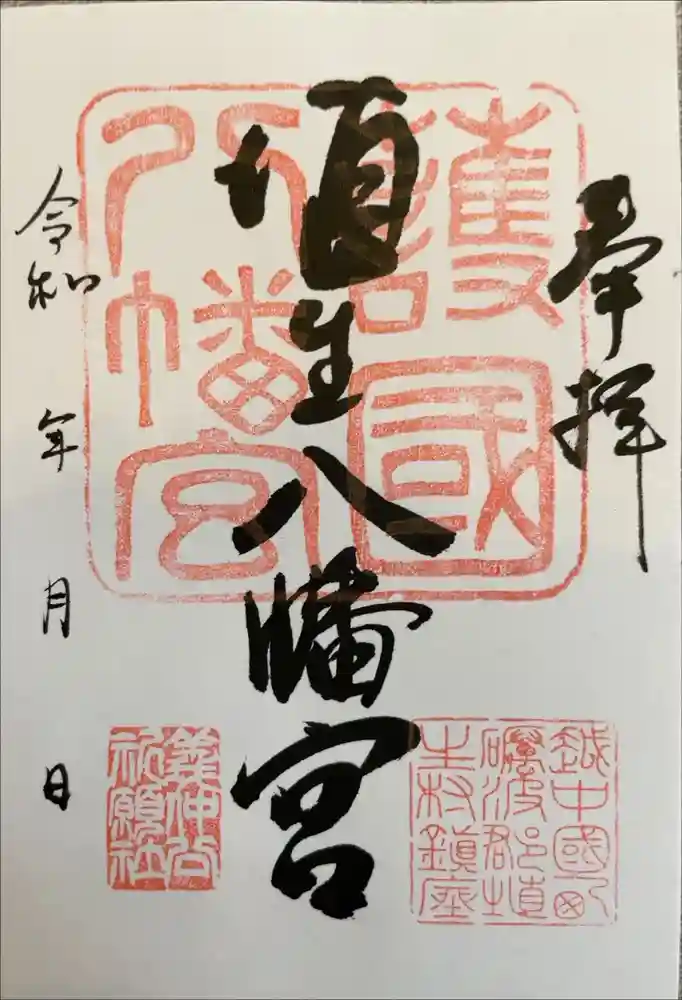 奉拝
埴生八幡宮
令和 年 月 日
護國
八幡宮
越中國
礪波郡埴
生村鎮座
義仲公
祈願社